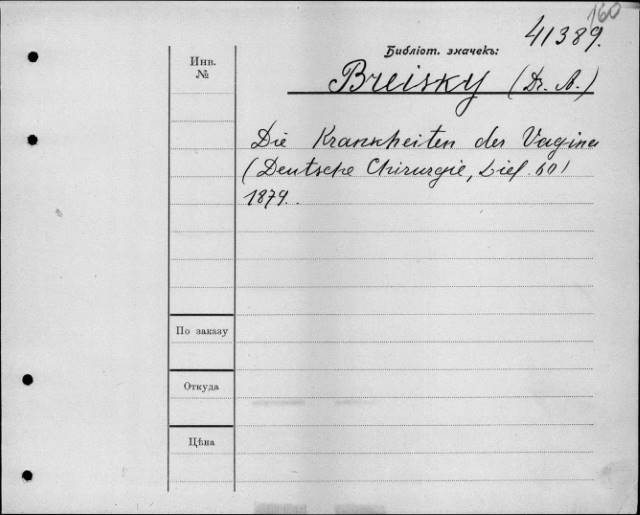 160
41389.
Библіот. значекъ:
Инв.
№
Breisky (Dr. A.)
Die Krankheiten der Vagina
(Deutsche Chirurgie, Lief. 60)
1879.
По заказу
Откуда
Цѣна